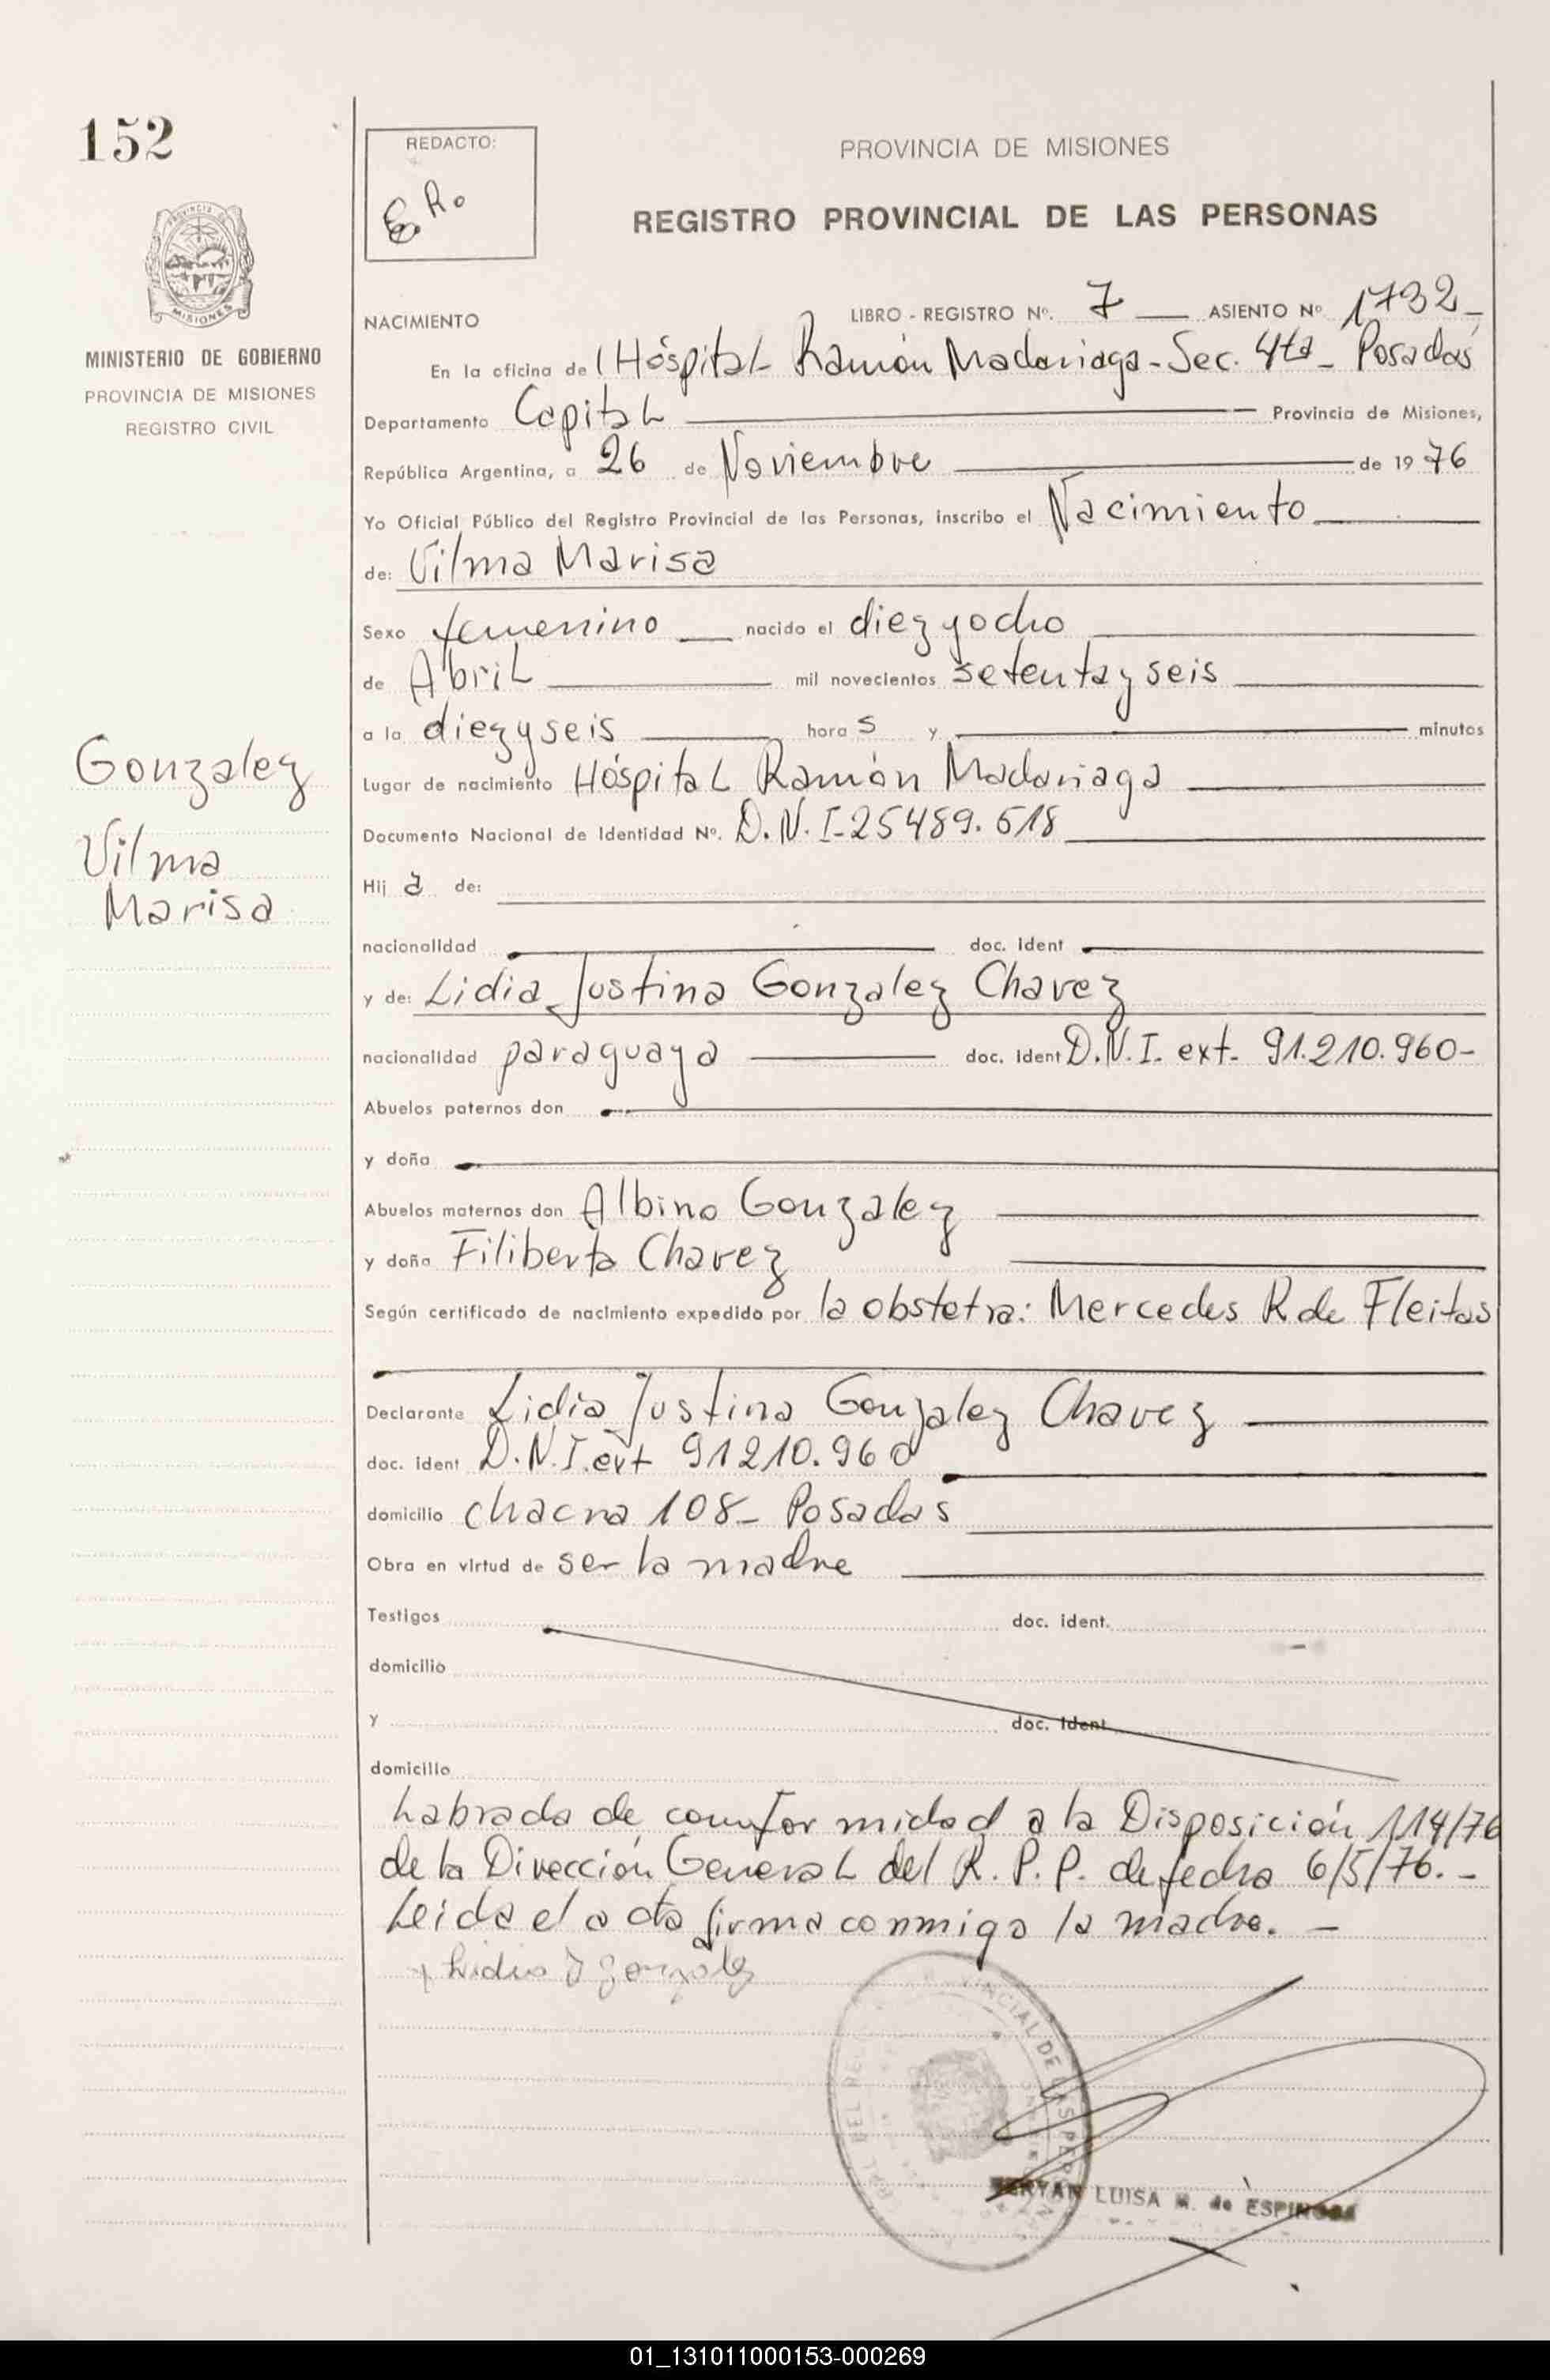 152
REDACTO:
PROVINCIA DE MISIONES
REGISTRO PROVINCIAL DE LAS PERSONAS
NACIMIENTO LIBRO - REGISTRO Nº. 7 ASIENTO Nº 1732
MINISTERIO DE GOBIERNO
PROVINCIA DE MISIONES
REGISTRO CIVIL
En la oficina del Hóspital Ramón Madariaga - Sec. 4ta - Posadas
Departamento Capital Provincia de Misiones,
República Argentina, a 26 de Noviembre de 1976
Yo Oficial Público del Registro Provincial de las Personas, inscribo el Nacimiento
de: Vilma Marisa
Sexo femenino nacido el diez y ocho
de Abril mil novecientos setenta y seis
a la diez y seis horas y minutos
Gonzalez
Vilma
Marisa
Lugar de nacimiento Hóspital Ramón Madariaga
Documento Nacional de Identidad Nº. D.N.I-25489.518
Hij a de:
nacionalidad doc. ident
y de: Lidia Justina Gonzalez Chavez
nacionalidad paraguaya doc. ident D.N.I. ext. 91.210.960-
Abuelos paternos don
y doña
Abuelos maternos don Albino Gonzalez
y doña Filiberta Chavez
Según certificado de nacimiento expedido por la obstetra: Mercedes R de Fleitas
Declarante Lidia Justina Gonzalez Chavez
doc. ident D.N.I. ext 91210.960
domicilio chacra 108- Posadas
Obra en virtud de ser la madre
Testigos doc. ident.
domicilio
y doc. ident
domicilio
Labrada de comformidad a la Disposición 114/76
de la Dirección General del R.P.P. de fecha 6/5/76.-
Leida el acta firma conmigo la madre. -
Lidia J Gonzalez
LUISA M. de ESPINOSA
01_131011000153-000269